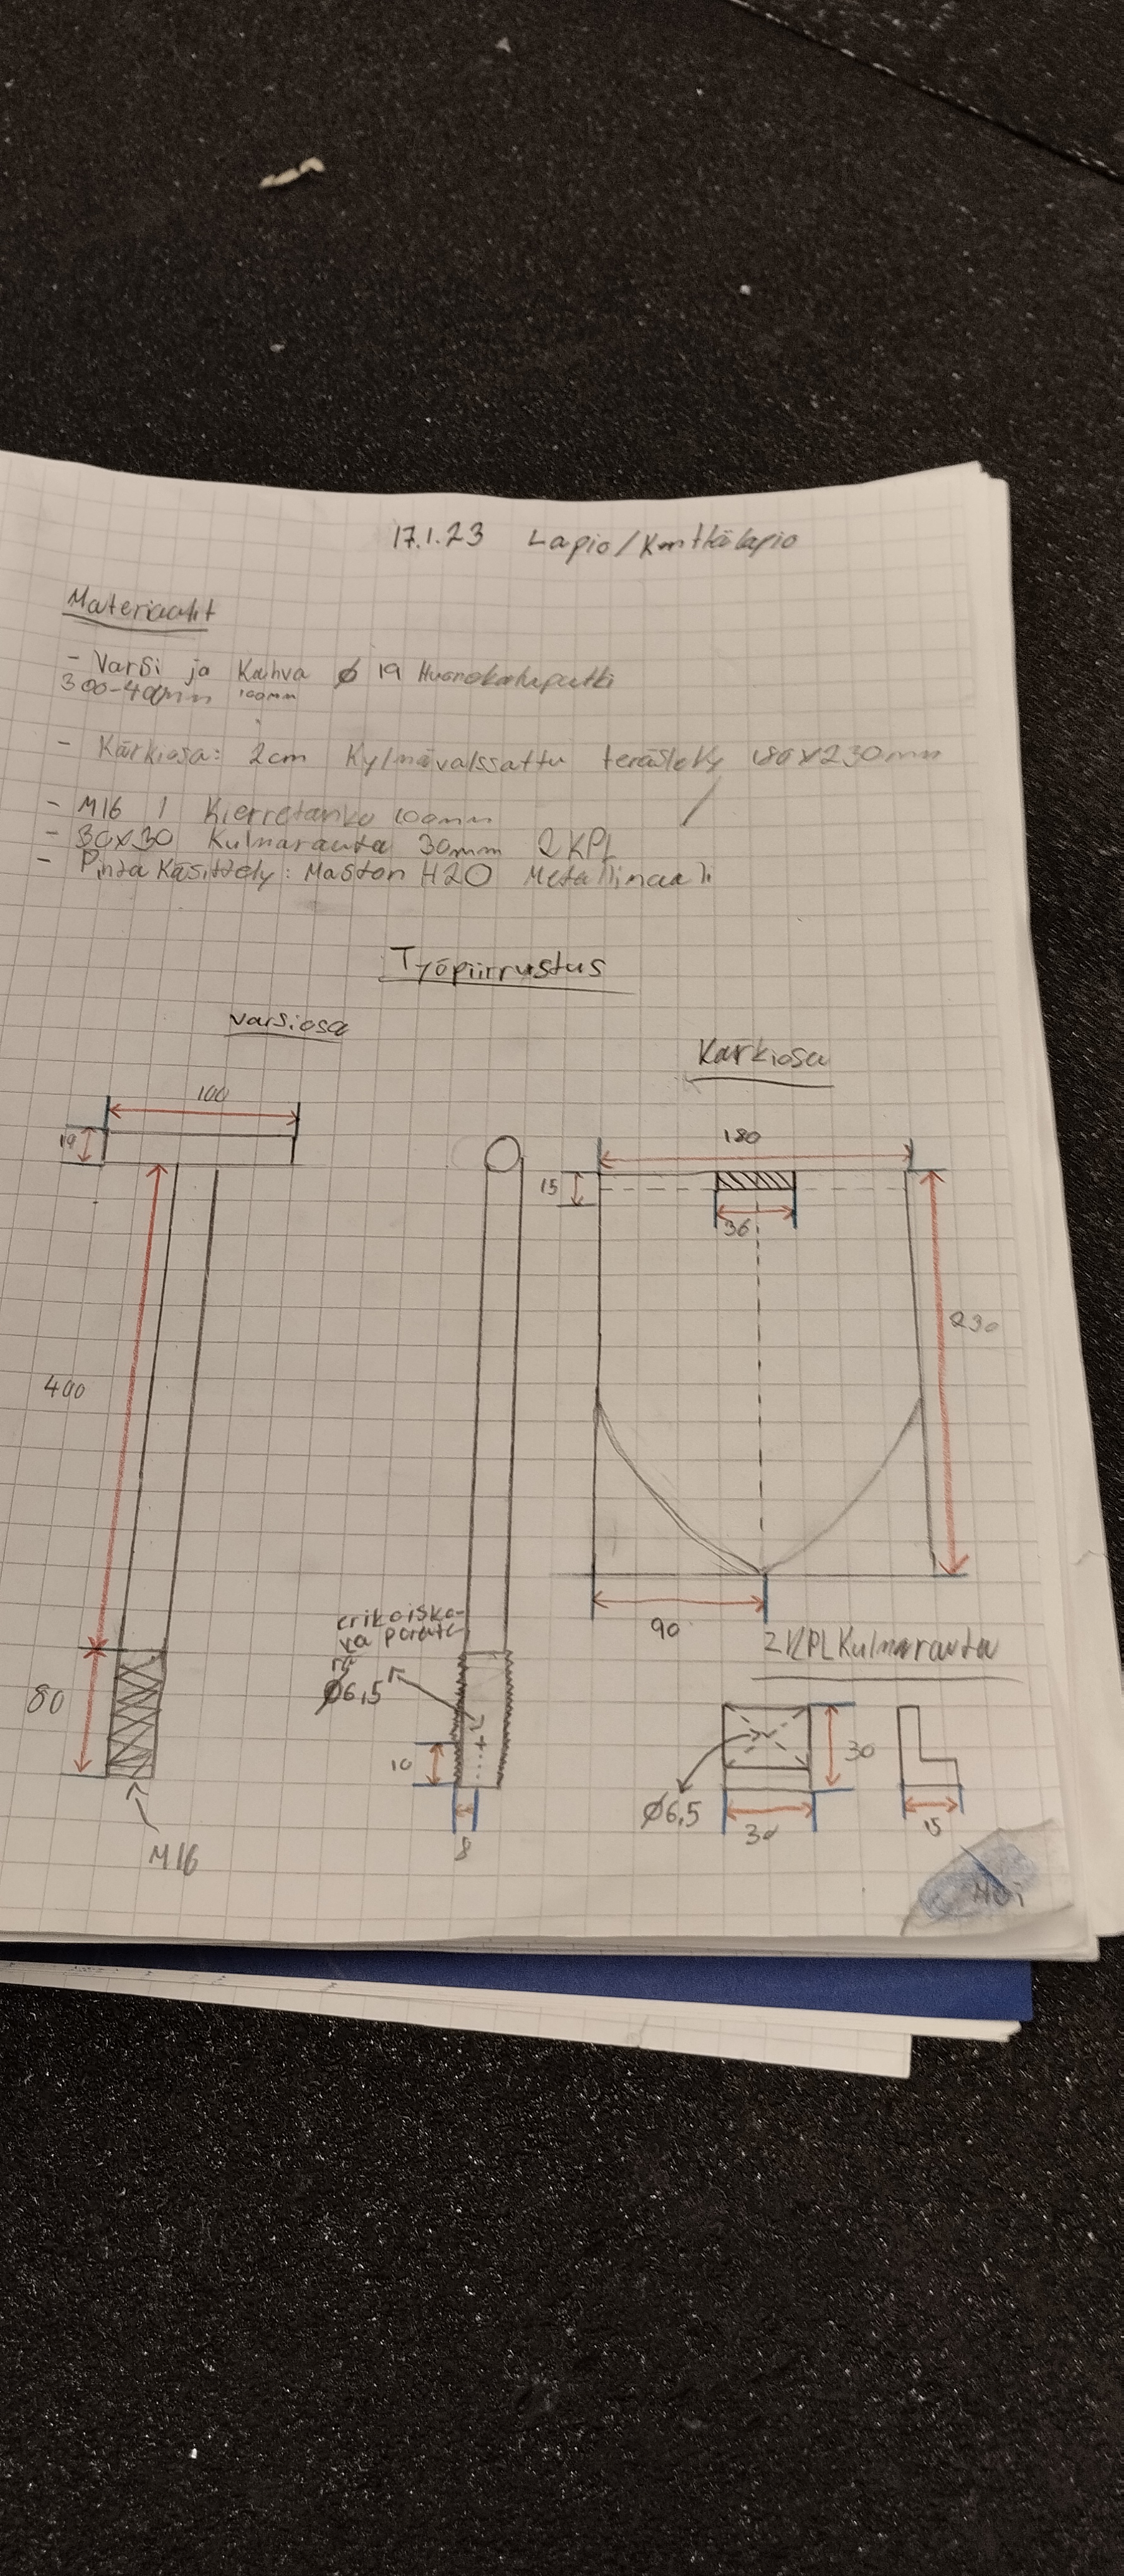 17.1.23 Lapio/Kenttälapio
Materiaalit
- Varsi ja Kahva ϕ 19 Huonekaluputki
300-400mm 100mm
- Kärkiosa: 2cm Kylmävalssattu teräslevy 180x230mm
- M16 1 Kierretanko 100mm
- 30x30 Kulmarauta 30mm 2KPL
- Pinta Käsittely: Maston H2O Metallimaali
Työpiirrustus
varsiosa
Karkiosa
100
19
180
15
36
230
400
erikoisko-
va porate-
rä
ϕ6,5
90
2KPL Kulmarauta
80
10
8
M16
30
ϕ6,5
30
15
Moi